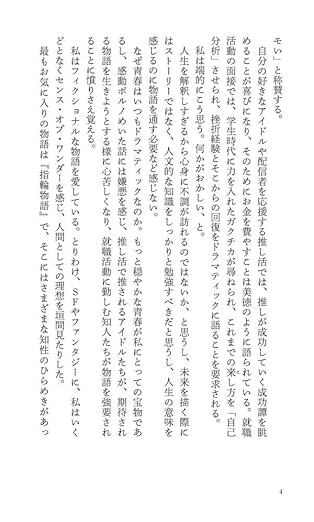 モい」と称賛する。
自分の好きなアイドルや配信者を応援する推し活では、推しが成功していく成功譚を眺
めることが喜びになり、そのためにお金を費やすことは美徳のように語られている。就職
活動の面接では、学生時代に力を入れたガクチカが尋ねられ、これまでの来し方を「自己
分析」させられ、挫折経験とそこからの回復をドラマティックに語ることを要求される。
私は端的にこう思う。何かがおかしい、と。
人生を解釈しすぎるから心身に不調が訪れるのではないか、と思うし、未来を描く際に
はストーリーではなく、人文的な知識をしっかりと勉強すべきだと思うし、人生の意味を
感じるのに物語を通す必要など感じない。
なぜ青春はいつもドラマティックなのか。もっと穏やかな青春が私にとっての宝物であ
るし、感動ポルノめいた話には嫌悪を感じ、推し活で推されるアイドルたちが、期待され
る物語を生きようとする様に心苦しくなり、就職活動に勤しむ知人たちが物語を強要され
ることに憤りさえ覚える。
私はフィクショナルな物語を愛している。とりわけ、SFやファンタジーに、私はいく
どとなくセンス・オブ・ワンダーを感じ、人間としての理想を垣間見たりした。
最もお気に入りの物語は『指輪物語』で、そこにはさまざまな知性のひらめきがあっ
4